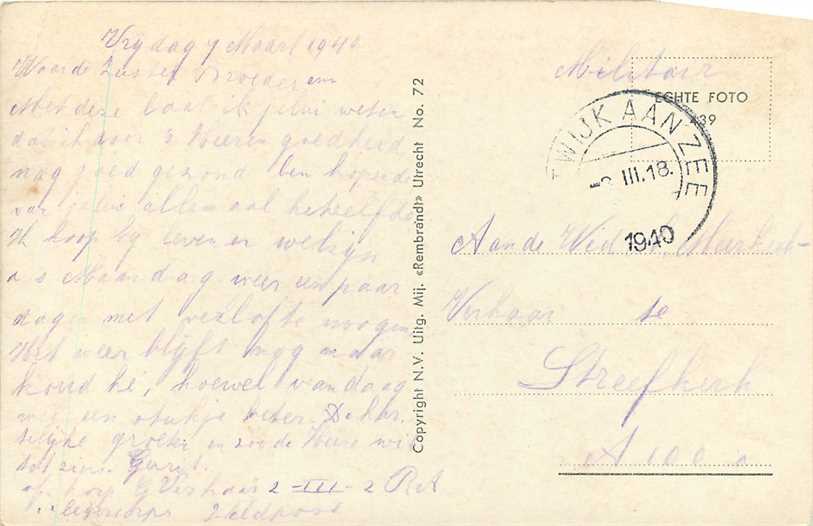 Vrijdag 7 Maart 1940
Waarde Zuster Broeder enz
Met deze laat ik jelui weten
dat ik door 's Heeren goedheid
nog goed gezond ben hopende
van jelui allemaal hetzelfde
Ik hoop bij leven en welzijn
a.s Maandag weer een paar
dagen met verlof te mogen
Het weer blijft nog maar
koud he, hoewel vandaag
weer een stukje beter. De har-
telijke groeten en zoo de Heere wil
tot ziens Gerrit.
G Verhaar 2-III-2 R.A
Veldpost
Copyright N.V. Uitg. Mij. «Rembrandt» Utrecht No. 72
Militair
ECHTE FOTO
39
WIJK AAN ZEE
III.18.
1940
Aan de Wed.
Verhaar te
Streefkerk
A 100 a